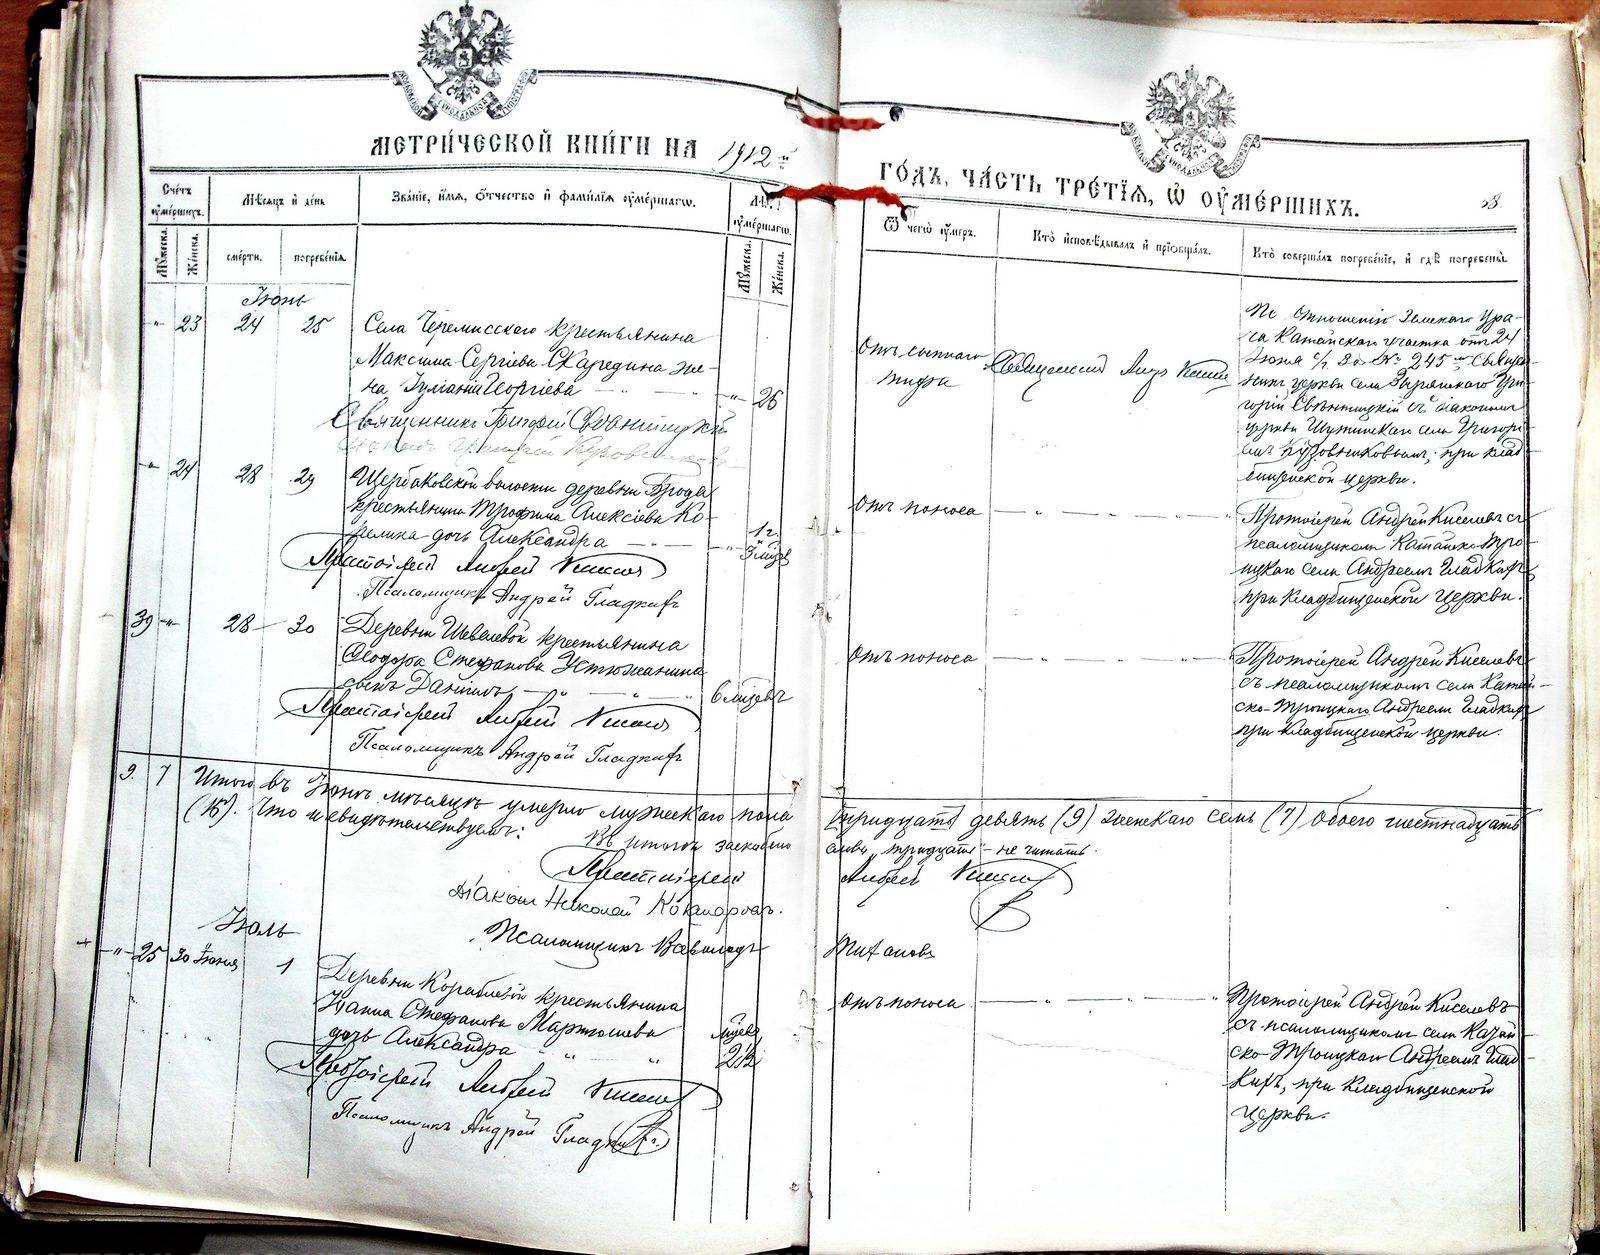 МЕТРИ́ЧЕСКОЙ КНИ́ГИ НА 1912 й
ГО́ДЪ, ЧА́СТЬ ТРЕ́ТІЯ, Ѡ ОУМЕ́РШИХЪ.
Сче́тъ оуме́ршихъ.
Мѣ́сяцъ и́ де́нь
Зва́ніе, и́мя, о́тчество и́ фами́лія оуме́ршагѡ.
оуме́ршагѡ.
Ѿ чегѡ̀ оу́меръ.
Кто̀ и́сповѣ́дывалъ и́ пріѻбща́лъ.
Кто̀ соверша́лъ погребе́ніе, и́ гдѣ̀ погребены̀.
Му́жеска.
Же́нска.
сме́рти.
погребе́нія.
Му́жеска.
Же́нска.
Іюнь
" 23 24 25
Села Черемисскаго крестьянина
Максима Сергіева Скаредина же-
на, Георгіева
" 26
Священникъ Григорій
Отъ сыпного
тифа
Священникъ
По отношенію Земскаго Вра-
ча Катайскаго участка отъ 24
Іюня с/г за № 245 Священ-
никъ церкви села
Григорій съ діакономъ
церкви села Григорі-
емъ Кузовниковымъ, при клад-
бищенской церкви.
" 24 28 29
Щербаковской волости деревни Брода
крестьянина Трофима Алексіева Ко-
релина дочь Александра
1 г.
3 мѣсяц.
Протоіерей Андрей Киселевъ
Псаломщикъ Андрей Гладкихъ
Отъ поноса
Протоіерей Андрей Киселевъ съ
псаломщикомъ Катайско-Тро-
ицкаго села Андреемъ Гладкихъ,
при кладбищенской церкви.
39 " 28 30
Деревни Шевелевой крестьянина
Ѳеодора Стефанова Устюжанина
сынъ Даніилъ
6 мѣсяцевъ
Протоіерей Андрей Киселевъ
Псаломщикъ Андрей Гладкихъ
Отъ поноса
Протоіерей Андрей Киселевъ
съ псаломщикомъ села Катай-
ско-Троицкаго Андреемъ Гладкихъ,
при кладбищенской церкви.
9. 7 Итого въ Іюнѣ мѣсяцѣ умерло мужескаго пола [тридцать] девять (9) женскаго семь (7) обоего шестнадцать
(16). Что и свидѣтельствуемъ:
Въ итогѣ заскоблено слово „тридцать" – не читать.
Протоіерей Андрей Киселевъ
Діаконъ Николай
Псаломщикъ Всеволодъ Титановъ
Іюль
" 25 30 Іюня 1
Деревни Корабlевой крестьянина
Іоанна Стефанова Мартюшева
дочь Александра
мѣсяц.
2½
Протоіерей Андрей Киселевъ
Псаломщикъ Андрей Гладкихъ
Отъ поноса
Протоіерей Андрей Киселевъ
съ псаломщикомъ села Катай-
ско-Троицкаго Андреемъ Глад-
кихъ, при кладбищенской
церкви.